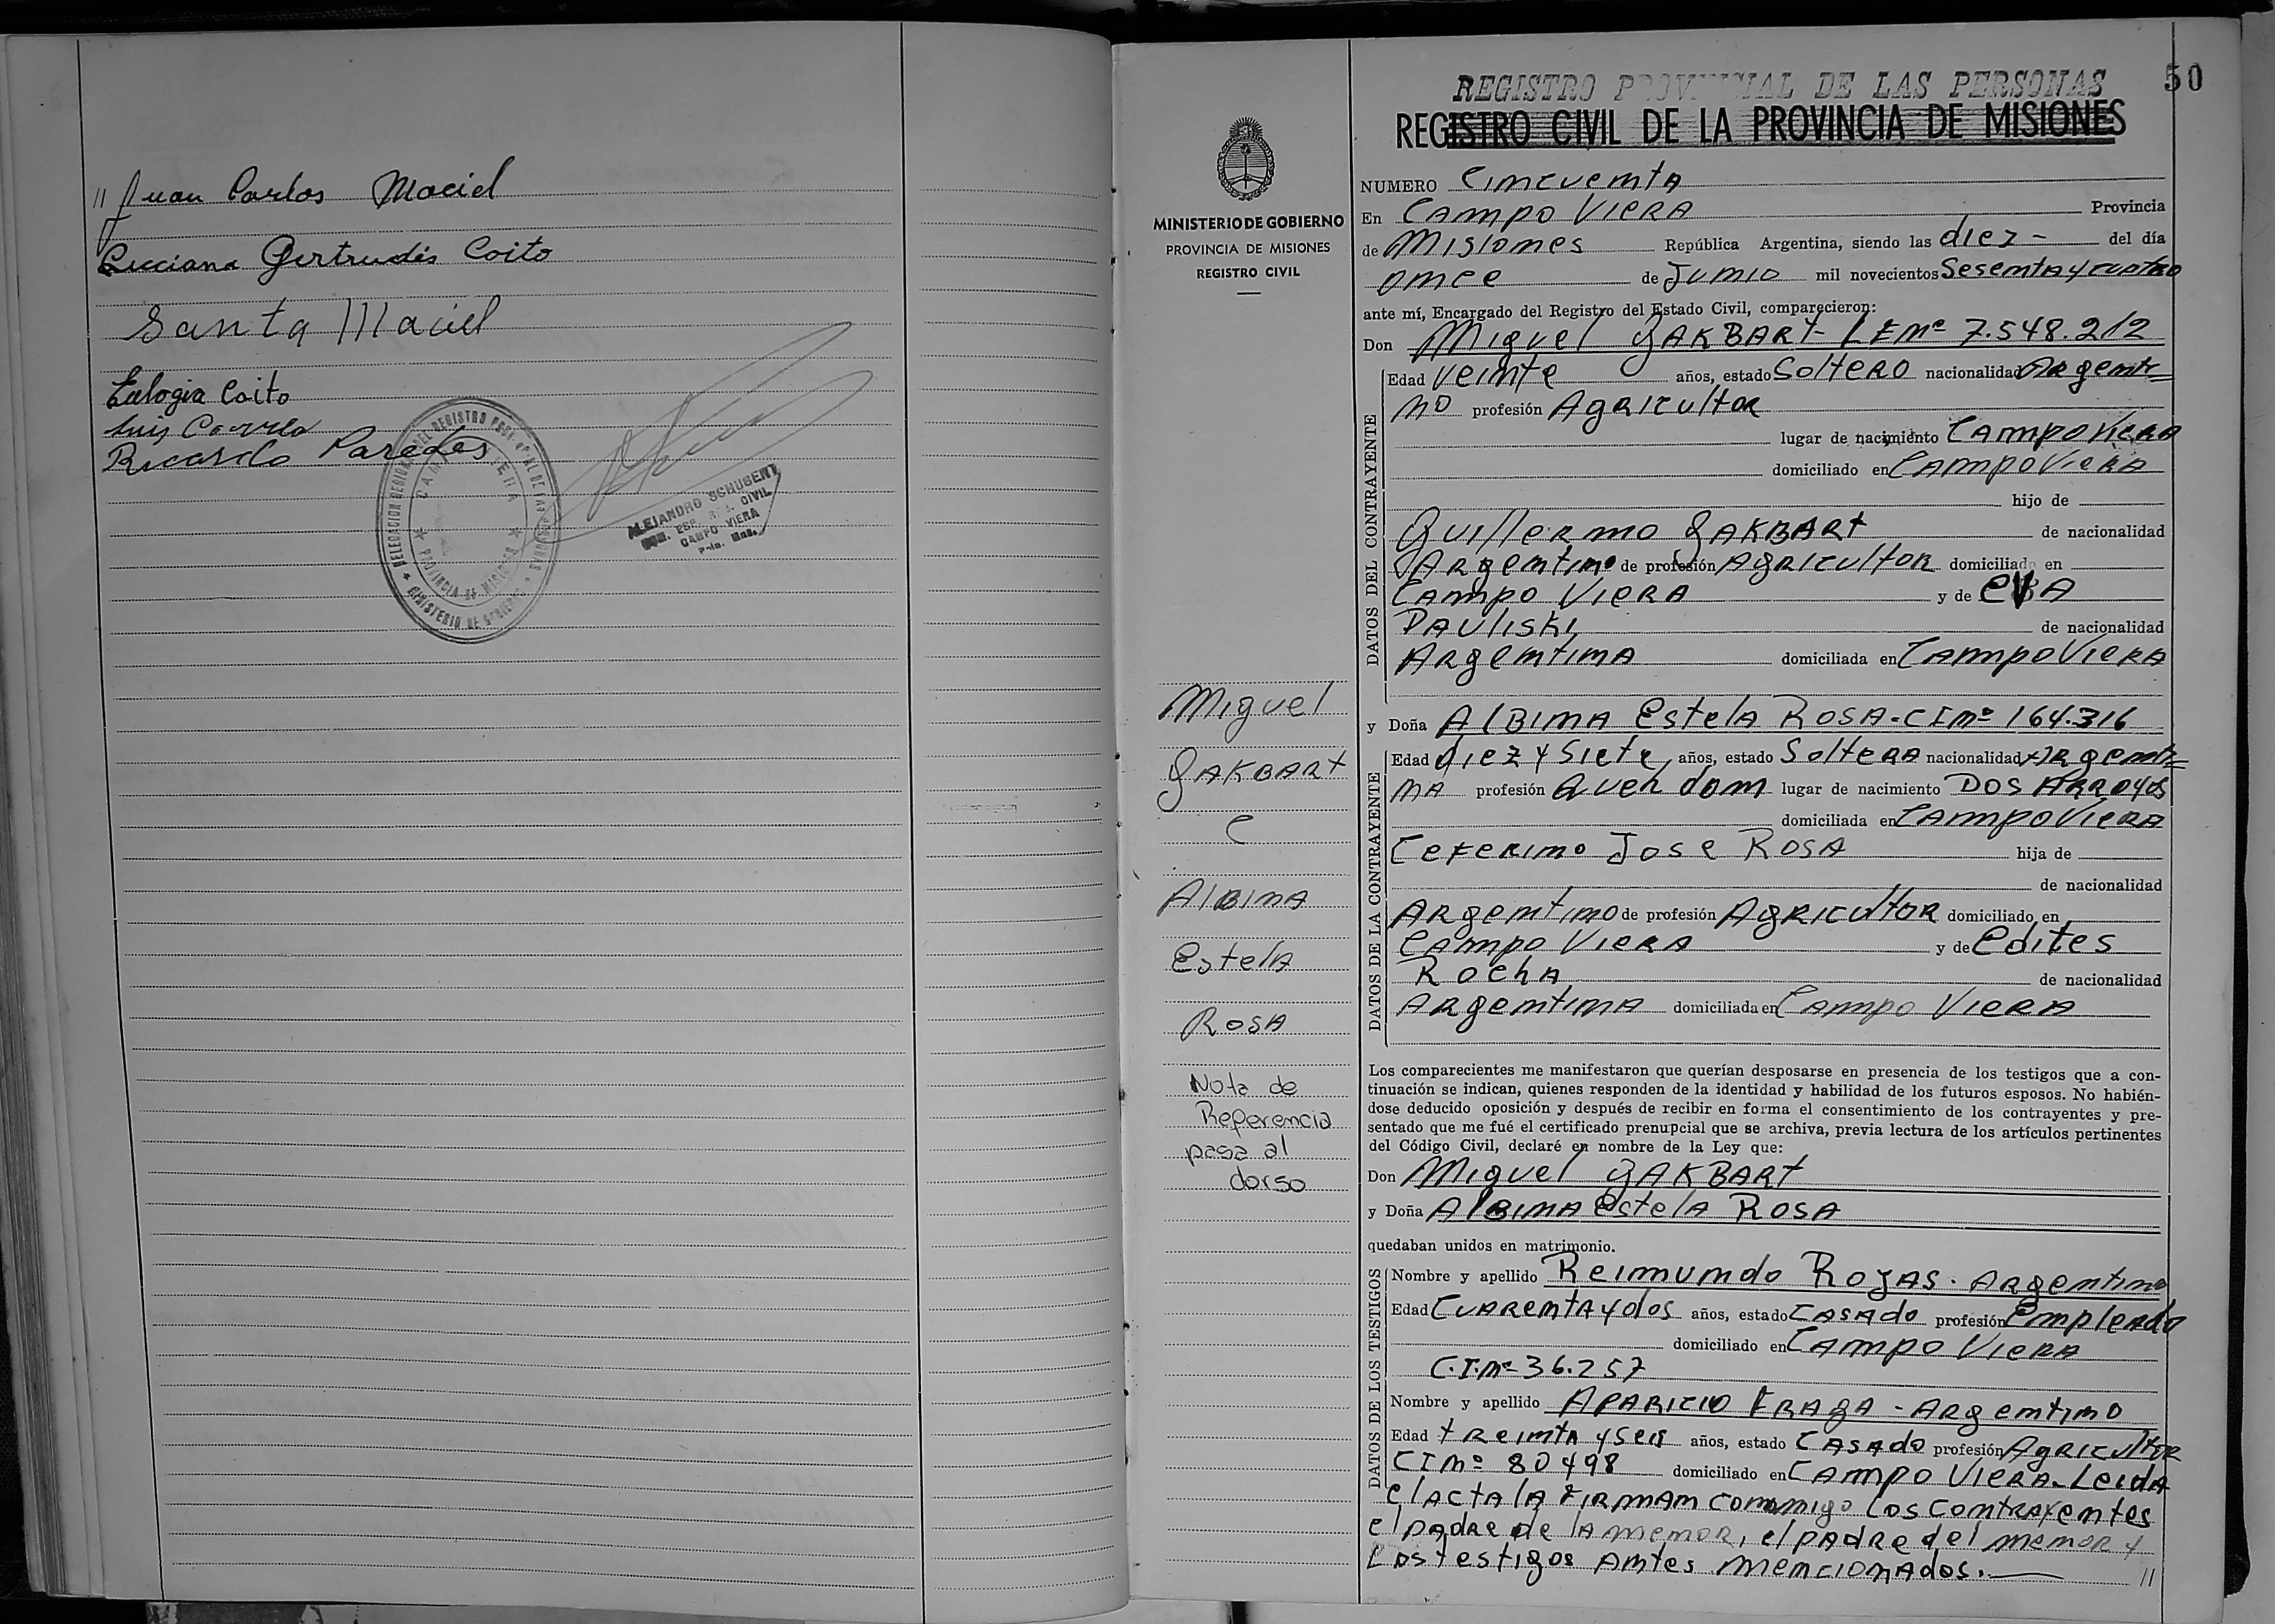 // Juan Carlos Maciel
Luciana Gertrudis Coito
Santa Maciel
Eulogia Coito
Luis Correa
Ricardo Paredes
DELEGACION REGIONAL DEL REGISTRO PROV. DE LAS PERSONAS
CAMPO VIERA
PROVINCIA DE MISIONES
MINISTERIO DE GOBIERNO
ALEJANDRO SCHUBERT
CIVIL
CAMPO VIERA
Mnes.
50
REGISTRO PROVINCIAL DE LAS PERSONAS
REGISTRO CIVIL DE LA PROVINCIA DE MISIONES
MINISTERIO DE GOBIERNO
PROVINCIA DE MISIONES
REGISTRO CIVIL
Miguel
GAKBART
e
AlBINA
Estela
ROSA
Nota de
Referencia
pasa al
dorso
NUMERO Cincuenta
En CAMPO VIERA Provincia
de Misiones República Argentina, siendo las diez - del día
once de Junio mil novecientos Sesenta y cuatro
ante mí, Encargado del Registro del Estado Civil, comparecieron:
Don Miguel GAKBART - LE Nº 7.548.212
DATOS DEL CONTRAYENTE
Edad veinte años, estado Soltero nacionalidad Argenti=
no profesión Agricultor
lugar de nacimiento CAMPO VIERA
domiciliado en CAMPO VIERA
hijo de
Guillermo GAKBART de nacionalidad
Argentino de profesión Agricultor domiciliado en
CAMPO VIERA y de EVA
PAULISKI de nacionalidad
Argentina domiciliada en CAMPO VIERA
y Doña AlBINA Estela ROSA - CI Nº 164.316
DATOS DE LA CONTRAYENTE
Edad diez y siete años, estado Soltera nacionalidad Argenti=
na profesión Queh dom lugar de nacimiento DOS ARROYOS
domiciliada en CAMPO VIERA
Ceferino Jose ROSA hija de
de nacionalidad
Argentino de profesión Agricultor domiciliado en
CAMPO VIERA y de Edites
Rocha de nacionalidad
Argentina domiciliada en CAMPO VIERA
Los comparecientes me manifestaron que querían desposarse en presencia de los testigos que a con-
tinuación se indican, quienes responden de la identidad y habilidad de los futuros esposos. No habién-
dose deducido oposición y después de recibir en forma el consentimiento de los contrayentes y pre-
sentado que me fué el certificado prenupcial que se archiva, previa lectura de los artículos pertinentes
del Código Civil, declaré en nombre de la Ley que:
Don Miguel GAKBART
y Doña AlBINA Estela ROSA
quedaban unidos en matrimonio.
DATOS DE LOS TESTIGOS
Nombre y apellido Reimundo ROJAS - Argentino
Edad Cuarenta y dos años, estado CASADO profesión Empleado
domiciliado en CAMPO VIERA
C.I. Nº 36.257
Nombre y apellido APARICIO FRAGA - Argentino
Edad treinta y seis años, estado CASADO profesión Agricultor
CI Nº 80498 domiciliado en CAMPO VIERA - Leida
el acta la firman conmigo los contrayentes
el padre de la menor, el padre del menor y
los testigos antes mencionados. //